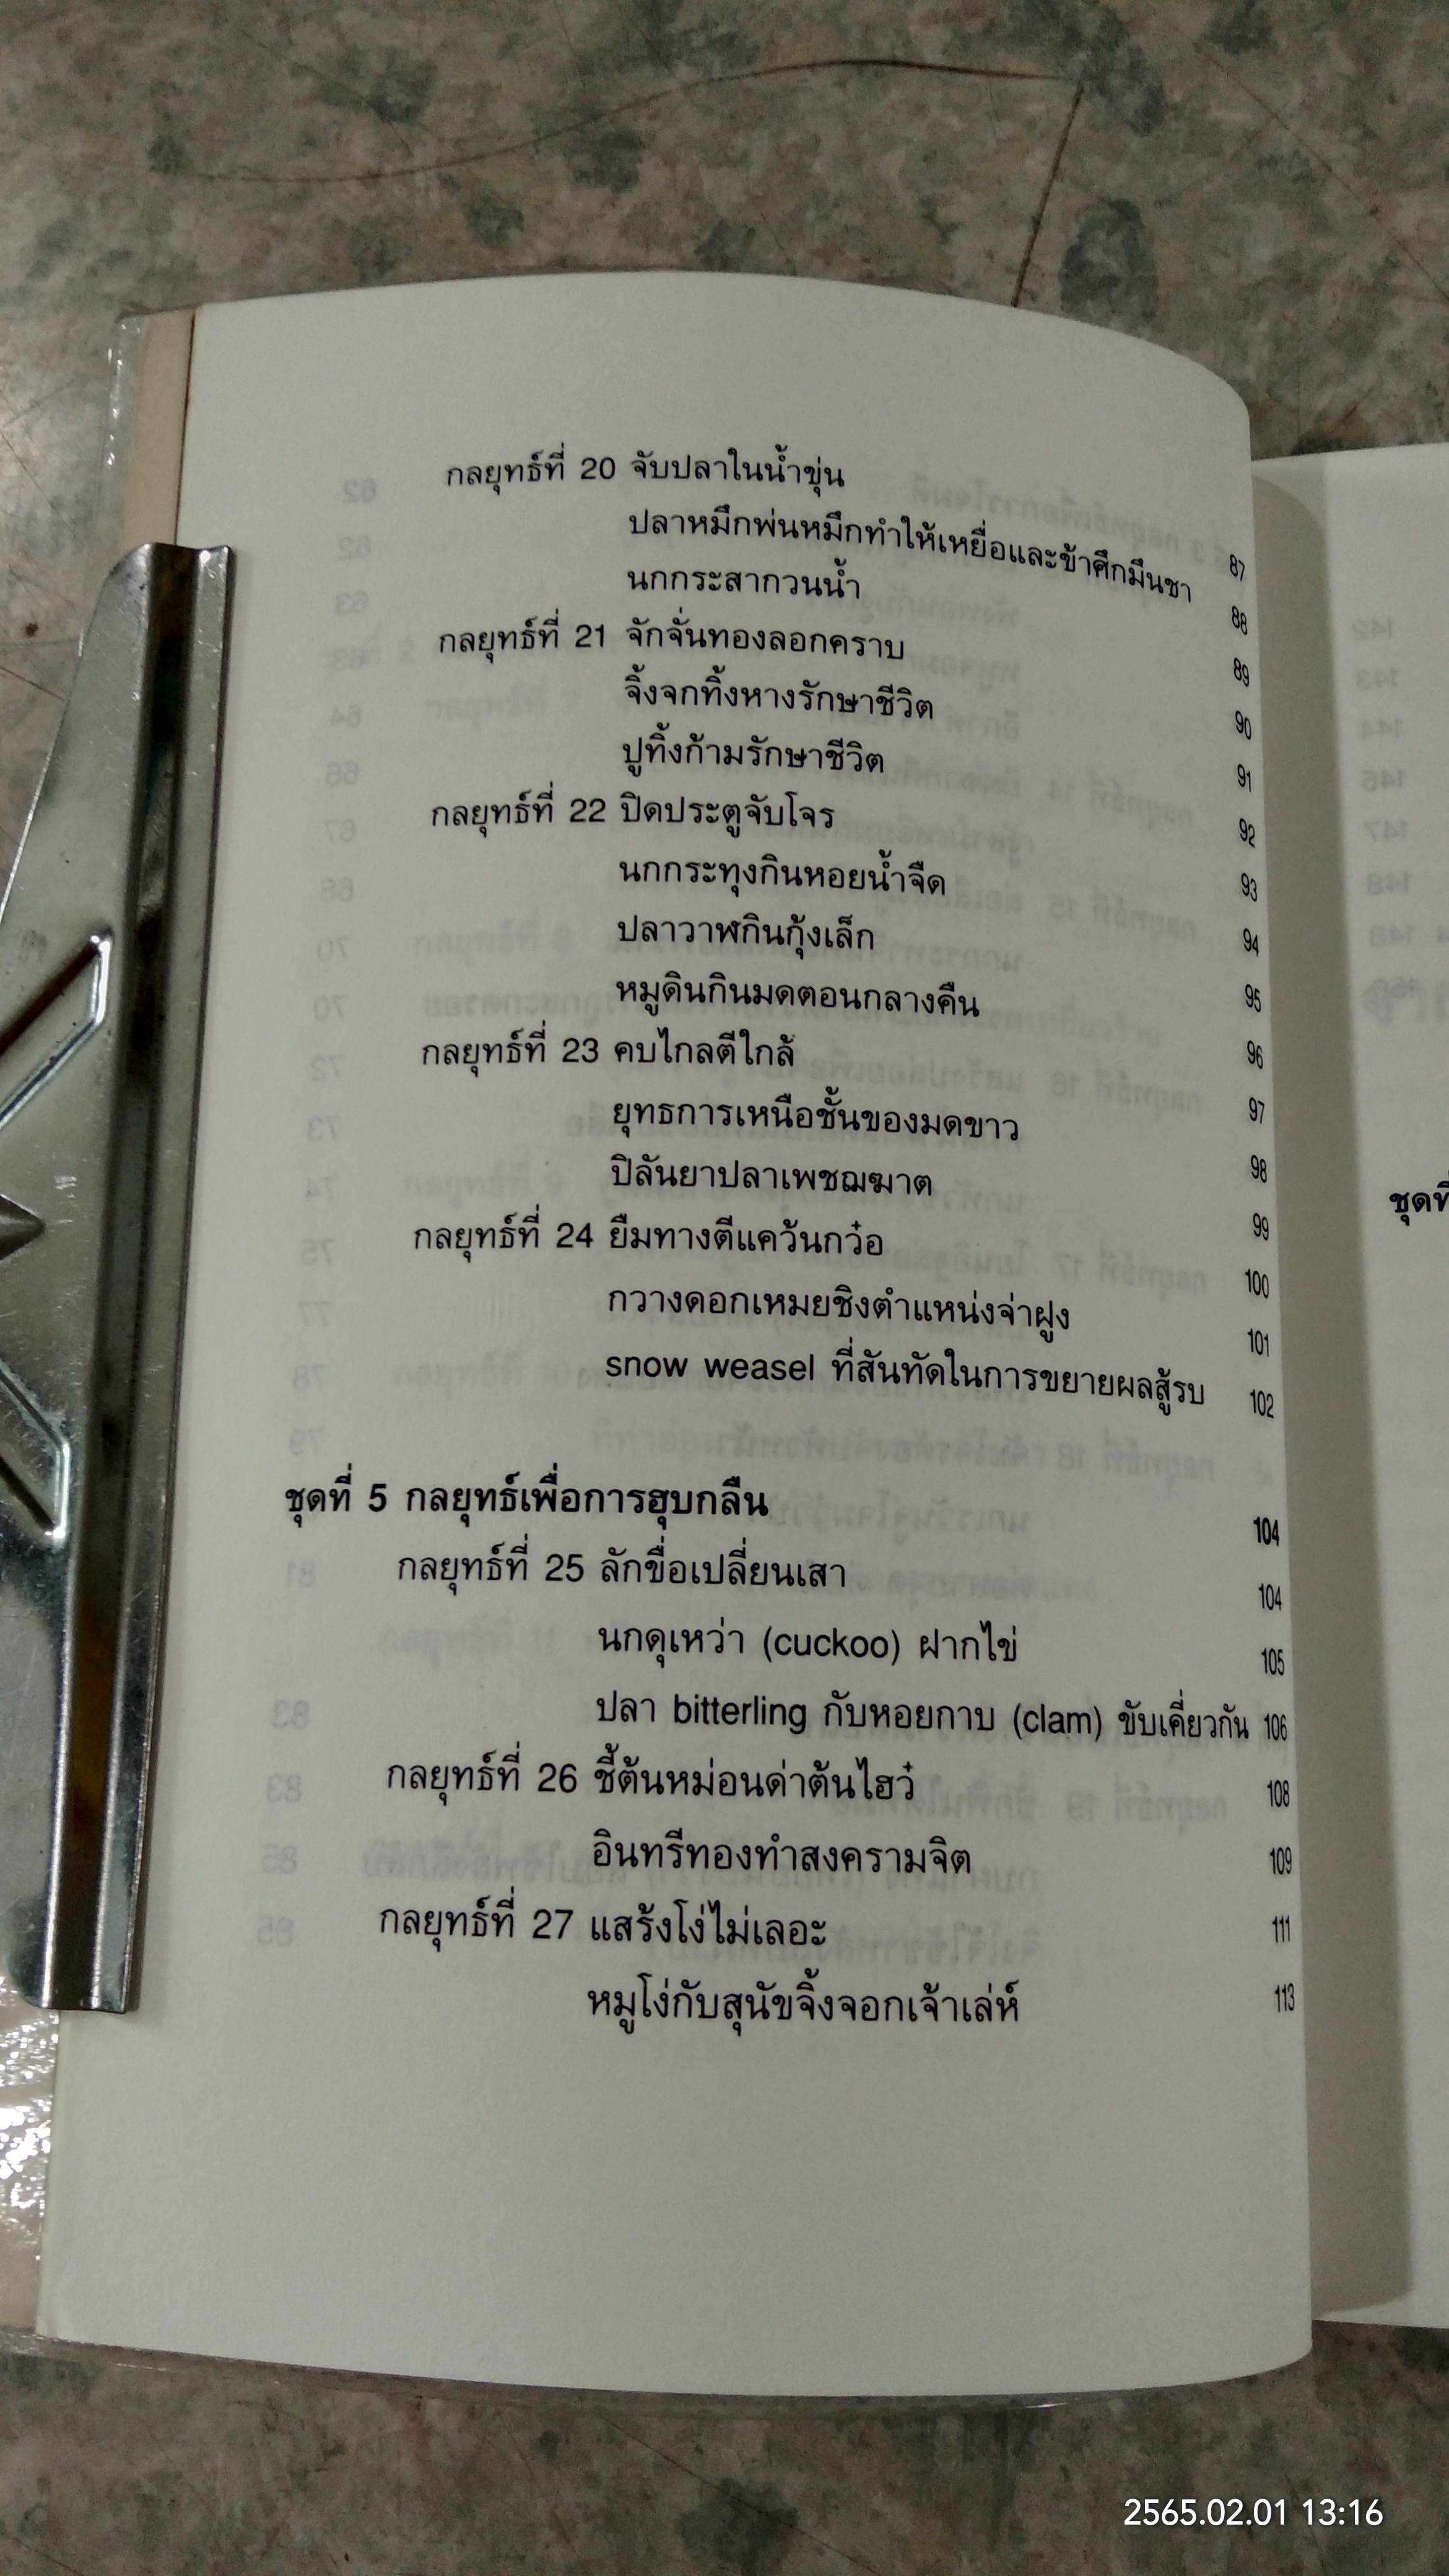 กลยุทธ์ที่ 20 จับปลาในน้ำขุ่น 87
ปลาหมึกพ่นหมึกทำให้เหยื่อและข้าศึกมึนชา 88
นกกระสากวนน้ำ 89
กลยุทธ์ที่ 21 จักจั่นทองลอกคราบ 90
จิ้งจกทิ้งหางรักษาชีวิต 91
ปูทิ้งก้ามรักษาชีวิต 92
กลยุทธ์ที่ 22 ปิดประตูจับโจร 93
นกกระทุงกินหอยน้ำจืด 94
ปลาวาฬกินกุ้งเล็ก 95
หมูดินกินมดตอนกลางคืน 96
กลยุทธ์ที่ 23 คบไกลตีใกล้ 97
ยุทธการเหนือชั้นของมดขาว 98
ปิลันยาปลาเพชฌฆาต 99
กลยุทธ์ที่ 24 ยืมทางตีแคว้นกว๋อ 100
กวางดอกเหมยชิงตำแหน่งจ่าฝูง 101
snow weasel ที่สันทัดในการขยายผลสู้รบ 102
ชุดที่ 5 กลยุทธ์เพื่อการฮุบกลืน 104
กลยุทธ์ที่ 25 ลักขื่อเปลี่ยนเสา 104
นกดุเหว่า (cuckoo) ฝากไข่ 105
ปลา bitterling กับหอยกาบ (clam) ขับเคี่ยวกัน 106
กลยุทธ์ที่ 26 ชี้ต้นหม่อนด่าต้นไฮว๋ 108
อินทรีทองทำสงครามจิต 109
กลยุทธ์ที่ 27 แสร้งโง่ไม่เลอะ 111
หมูโง่กับสุนัขจิ้งจอกเจ้าเล่ห์ 113
ชุดที่
2565.02.01 13:16